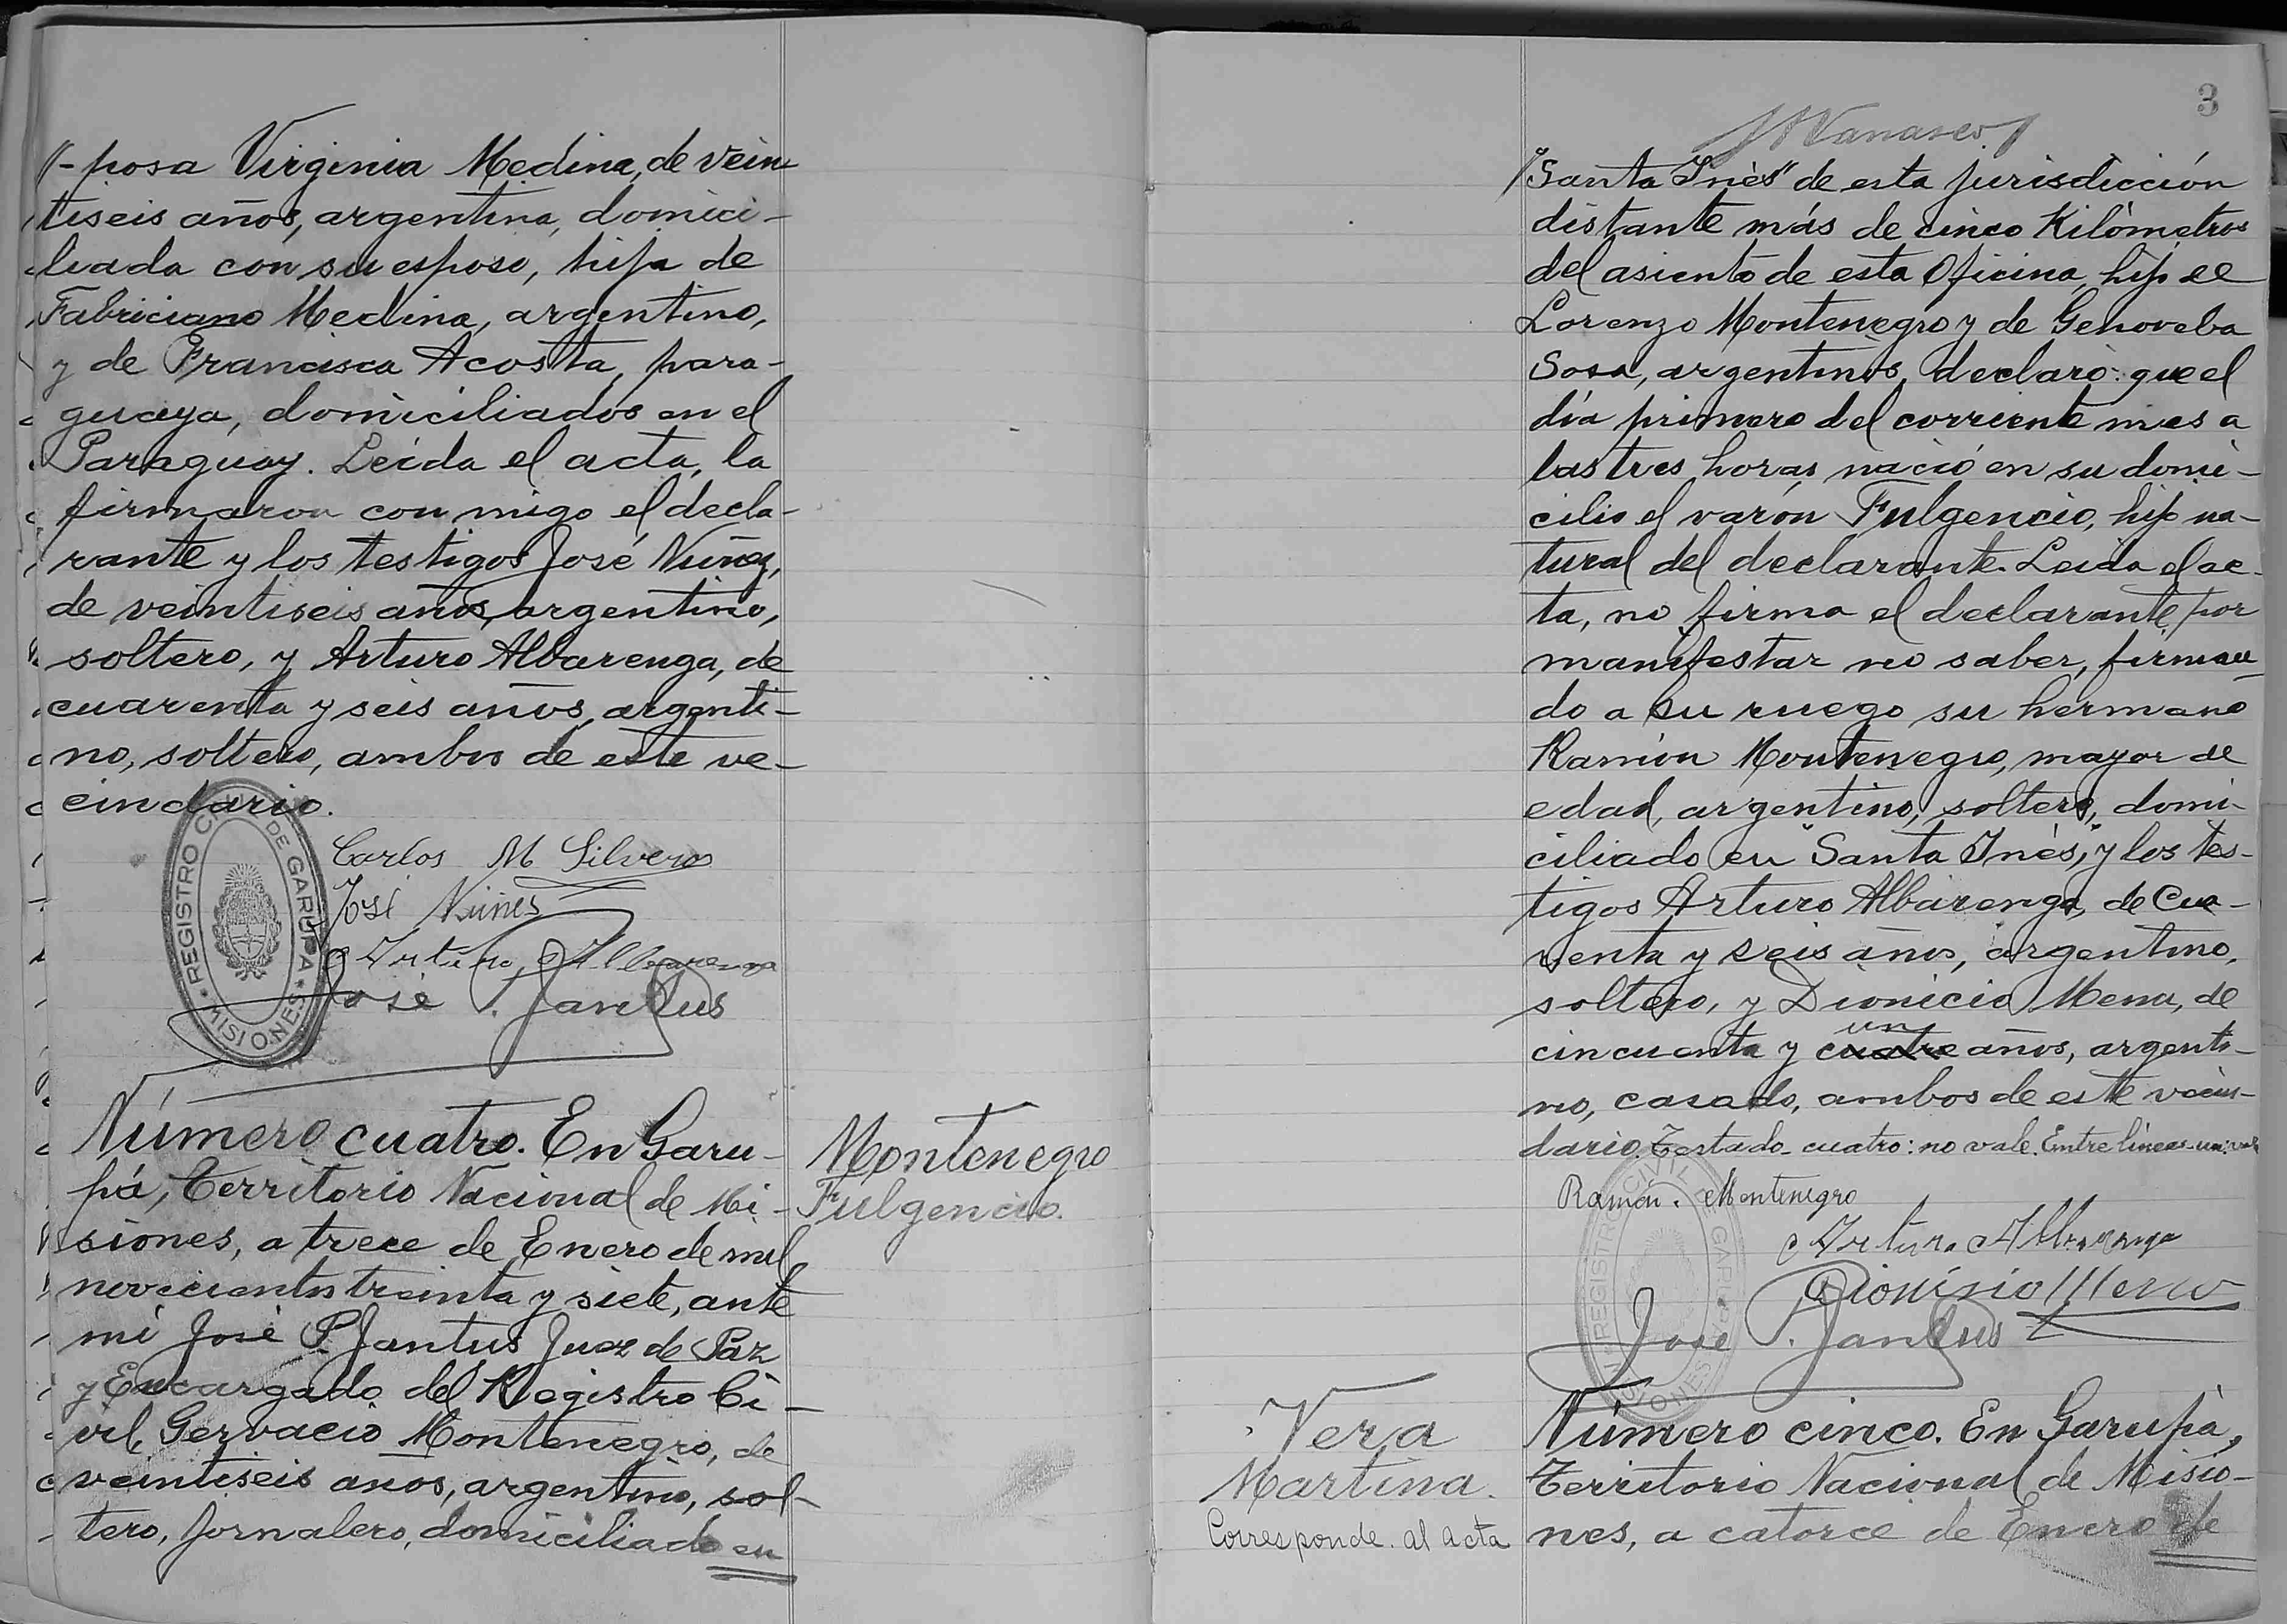 //-posa Virginia Medina, de vein
tiseis años, argentina, domici-
liada con su esposo, hija de
Fabriciano Medina, argentino,
y de Francisca Acosta, para-
guaya, domiciliados en el
Paraguay. Leída el acta, la
firmaron con migo el decla-
rante y los testigos José Nuñez,
de veintiseis años, argentino,
soltero, y Arturo Albarenga, de
cuarenta y seis años, argenti-
no, soltero, ambos de este ve-
cindario.
Carlos M Silvero
José Nuñes
Arturo Albarenga
José P. Jantus
REGISTRO CIVIL DE GARUPA
MISIONES
Número cuatro. En Garu-
pá, Territorio Nacional de Mi-
siones, a trece de Enero de mil
novecientos treinta y siete, ante
mi José P. Jantus Juez de Paz
y Encargado del Registro Ci-
vil, Gervacio Montenegro, de
veintiseis años, argentino, sol-
tero, jornalero, domiciliado en
Montenegro
Fulgencio.
3
/"Santa Inés" de esta jurisdicción
distante más de cinco Kilómetros
del asiento de esta Oficina, hijo de
Lorenzo Montenegro y de Genoveba
Sosa, argentinos, declaró: que el
día primero del corriente mes a
las tres horas nació en su domi-
cilio el varón Fulgencio, hijo na-
tural del declarante. Leida el ac-
ta, no firma el declarante por
manifestar no saber, firman-
do a su ruego su hermano
Ramón Montenegro, mayor de
edad, argentino, soltero, domi-
ciliado en "Santa Inés," y los tes-
tigos Arturo Albarenga, de Cua-
renta y seis años, argentino,
soltero, y Dionicio Mena, de
un
cincuenta y cuatro años, argenti-
no, casado, ambos de este vecin-
dario. Testado cuatro: no vale. Entre líneas-un: vale
Ramón. Montenegro
Arturo Albarenga
Dionisio Mena
José P. Jantus
REGISTRO CIVIL DE GARUPA
MISIONES
Vera
Martina.
Corresponde al acta
Número cinco. En Garupá,
Territorio Nacional de Misio-
nes, a catorce de Enero de